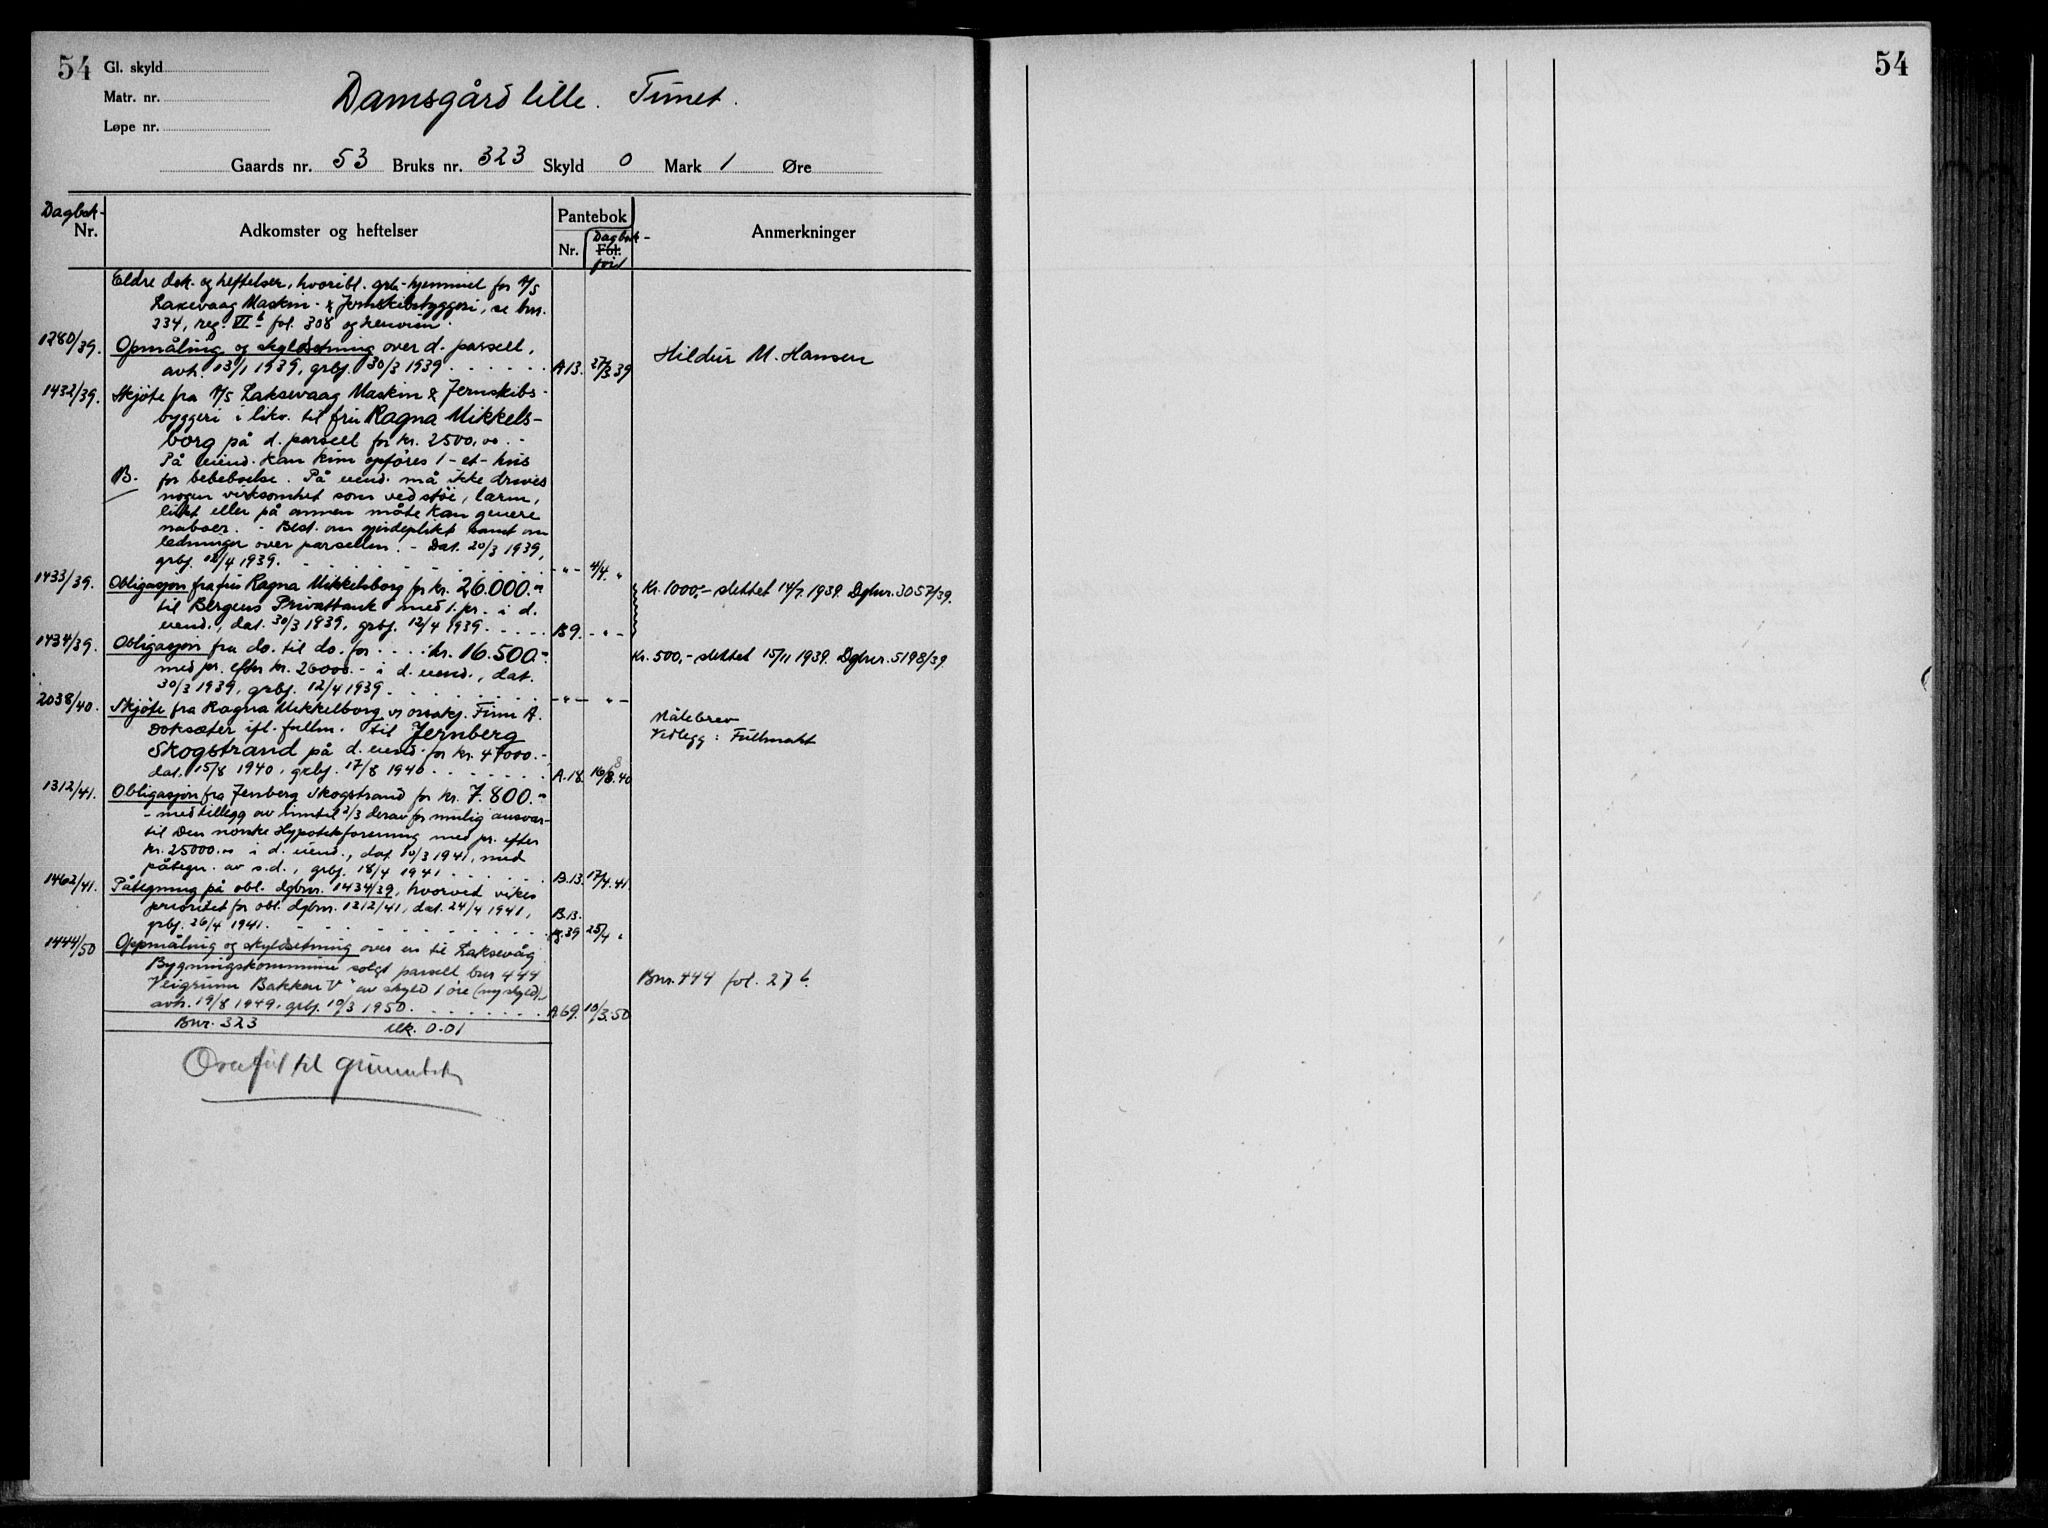 54
Gl. skyld
Matr. nr.
Løpe nr.
Damsgård lille. Tunet.
Gaards nr. 53 Bruks nr. 323 Skyld 0 Mark 1 Øre
Dagbok-
Nr.
Adkomster og heftelser
Pantebok
Nr.
Dagbok-
Fol.
ført
Anmerkninger
Eldre dok. og heftelser, hvoribl. grb. hjemmel for A/S
Laxevaag Maskin- & Jernskibsbyggeri, se bnr.
234, reg. VI b fol. 308 og henvisn.
1280/39. Opmåling og skyldsetning over d. parsell,
avh. 13/1 1939, grbj. 30/3 1939 . . . . . . A.13. 27/3.39 Hildur M. Hansen
1432/39. Skjøte fra A/S Laksevaag Maskin & Jernskibs-
byggeri i likv. til fru Ragna Mikkels-
borg på d. parsell for kr. 2500,00. -
På eiend. kan kun opføres 1-et-hus
B. for bebeboelse. På eiend. må ikke drives
nogen virksomhet som ved støi, larm,
lukt eller på annen måte kan genere
naboer. - Best. om gjerdeplikt samt om
ledninger over parsellen. - Dat. 20/3 1939,
grbj. 12/4 1939. . . . . . . . - " - 4/4 "
1433/39. Obligasjon fra fru Ragna Mikkelsborg for kr. 26.000.-
til Bergens Privatbank med 1. pr. i d.
eiend., dat. 30/3 1939, grbj. 12/4 1939. . . . . B9. - " -
Kr. 1000,- slettet 14/7 1939. Dgbnr. 3057/39.
1434/39. Obligasjon fra do. til do. for . . . . kr. 16.500.-
med pr. efter kr. 26000.- i d. eiend., dat.
30/3 1939, grbj. 12/4 1939. . . . . . . - " - - " -
Kr. 500,- slettet 15/11 1939. Dgbnr. 5198/39.
2038/40. Skjøte fra Ragna Mikkelborg v/ orsakf. Finn A.
Doksæter ifl. fullm. til Jernberg
Skogstrand på d. eiend. for kr. 47000.-,
dat. 15/8 1940, grbj. 17/8 1940 . . . . . . . A.18. 16/8.40
8
Målebrev
Vedlegg: Fullmakt
1312/41. Obligasjon fra Jernberg Skogstrand for kr. 7.800.-
- med tillegg av inntil 2/3 derav for mulig ansvar -
til Den norske Hypotekforening med pr. efter
kr. 25000.00 i d. eiend., dat. 10/3 1941, med
påtegn. av s.d., grbj. 18/4 1941 . . . . . . B.13. 17/4.41.
1462/41. Påtegning på obl. dgbnr. 1434/39, hvorved vikes
prioritet for obl. dgbnr. 1312/41, dat. 24/4 1941, B.13.
grbj. 26/4 1941. . . . . . . . . . 39 25/4 "
1444/50 Oppmåling og skyldsetning over en til Laksevåg
Bygningskommune solgt parsell bnr 444
"Veigrunn Bakken V" av skyld 1 øre (ny skyld).
avh. 19/8 1949, grbj. 10/3 1950. . . . . . . . A.69. 10/3.50
Bnr. 444 fol. 27 b.
Bnr. 323 mk. 0.01
Overført til grunnbok
54